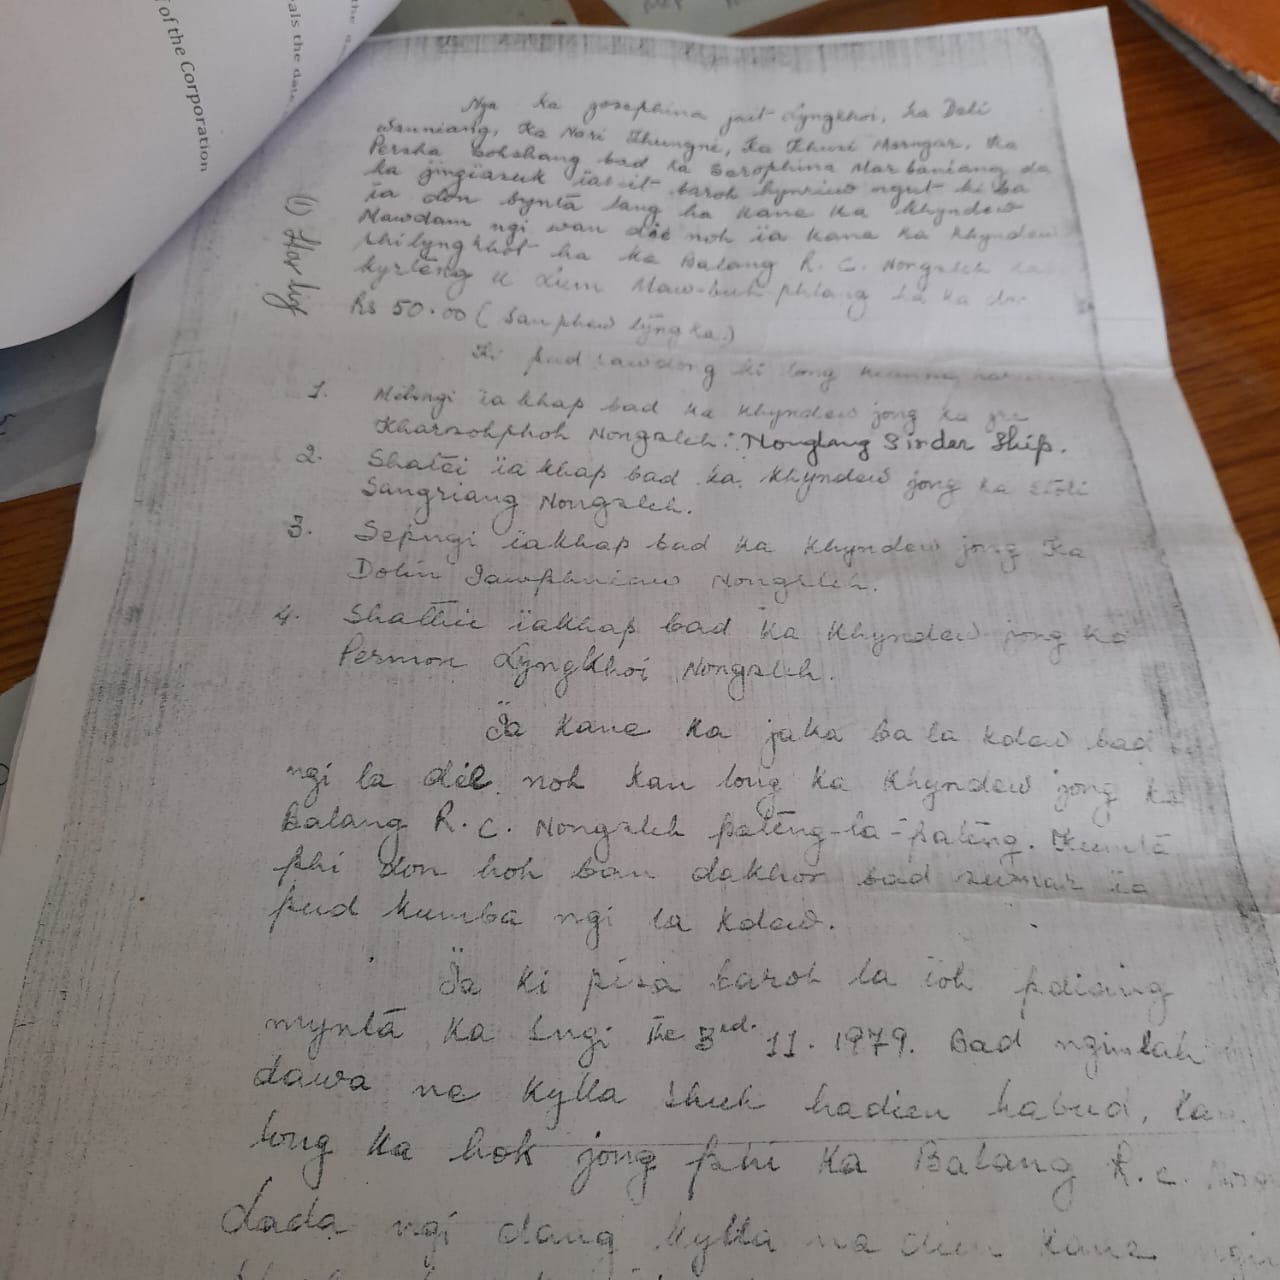 of the Corporation
als the date,
the
(1) Hor lig
Nga ka Josephina jait Lyngkhoi, ka Doli
Wanniang, Ka Nari Thungni, Ka Thwei Marngar, Ka
Persha Sohshang bad ka Serophina Marbaniang da
ka jingïasuk ïaleit baroh hynriew ngut ki ba
ïa don bynta lang ha kane ka khyndew
Mawdam ngi wan die noh ïa kane ka khyndew
shilyngkhot ha ka Balang R. C. Nongsleh
kyrteng u Lum Maw-buh-phlang ha ka dor
Rs 50.00 (San phew tyngka.)
Ki pud sawdong ki long kumne
1. Mihngi ïa khap bad ka khyndew jong ka
Kharsohphoh Nongsleh: Nonglang Sirdar Ship.
2. Shatei ïa khap bad ka khyndew jong ka
Sangriang Nongsleh.
3. Sepngi ïakhap bad ka khyndew jong Ka
Dolin Nongsleh.
4. Shathie ïakhap bad ka khyndew jong ka
Permon Lyngkhoi Nongsleh.
Ïa kane ka jaka ba la kdew bad
ngi la die noh kan long ka khyndew jong ka
Balang R.C. Nongsleh pateng-la-pateng. Kumta
phi don hok ban dakhol bad sumar ïa
pud kumba ngi la kdew.
Ïa ki pisa baroh la ïoh pdiang
mynta ka sngi the 3rd. 11. 1979. Bad ngimlah
dawa ne kylla shuh hadien habud, kan
long ka hok jong phi ka Balang R.C.
Lada ngi dang kylla na dien kane ngin